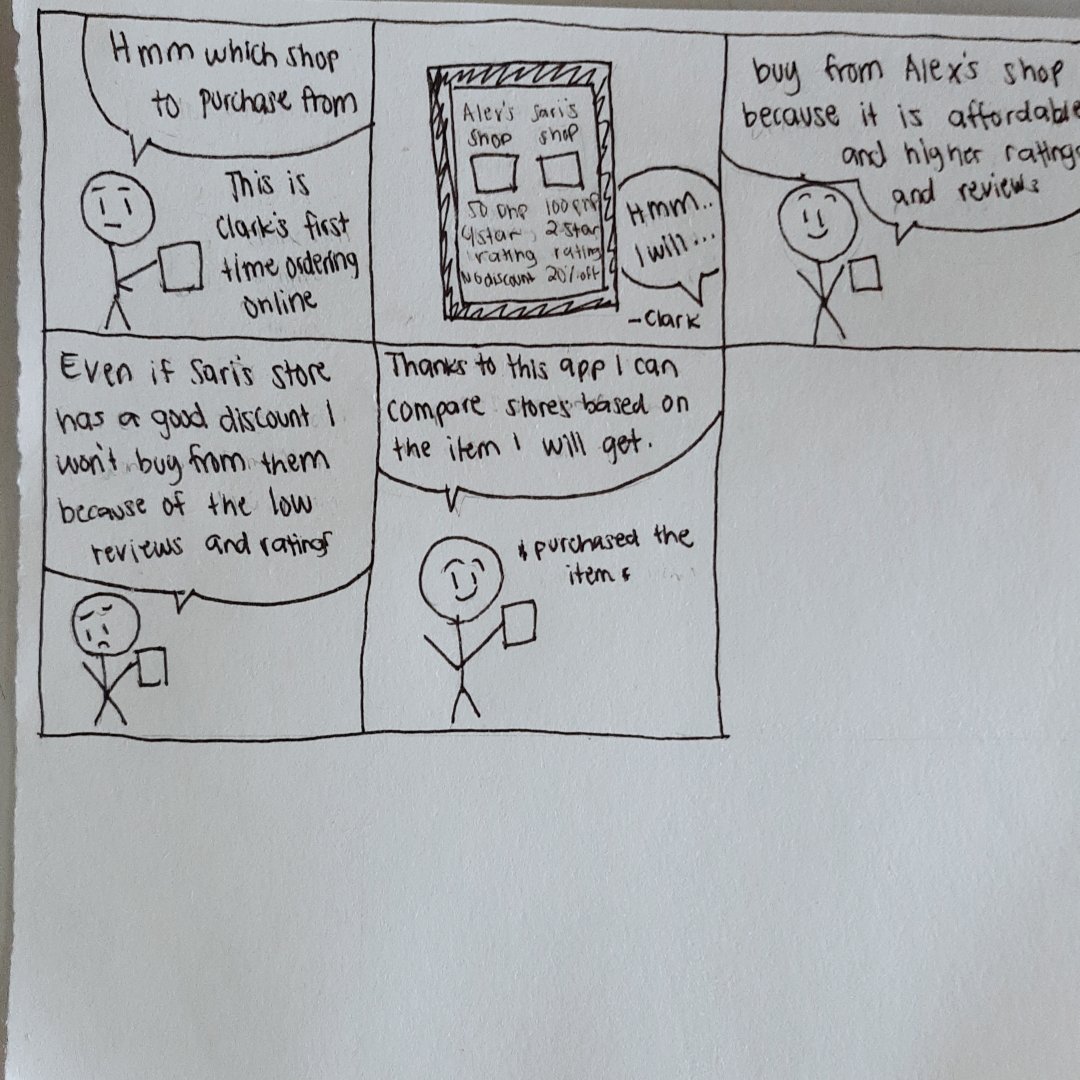 Hmm which shop
to purchase from
This is
Clark's first
time ordering
online
Alex's Sari's
shop shop
50 php 100 php
4 star 2 star
rating rating
No discount 20% off
Hmm..
I will...
-Clark
buy from Alex's shop
because it is affordable
and higher ratings
and reviews
Even if Sari's store
has a good discount I
won't buy from them
because of the low
reviews and ratings
Thanks to this app I can
compare stores based on
the item I will get.
* purchased the
item *